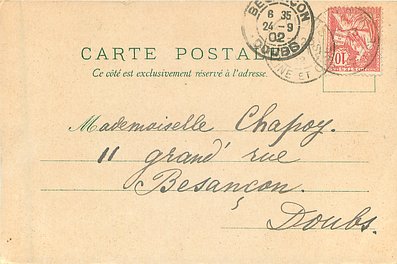 BESANCON
6 35
24 - 9
02
DOUBS
CARTE POSTALE
NE ET
10
Ce côté est exclusivement réservé à l'adresse.
Mademoiselle Chapoy.
11 grand' rue
Besançon.
Doubs.